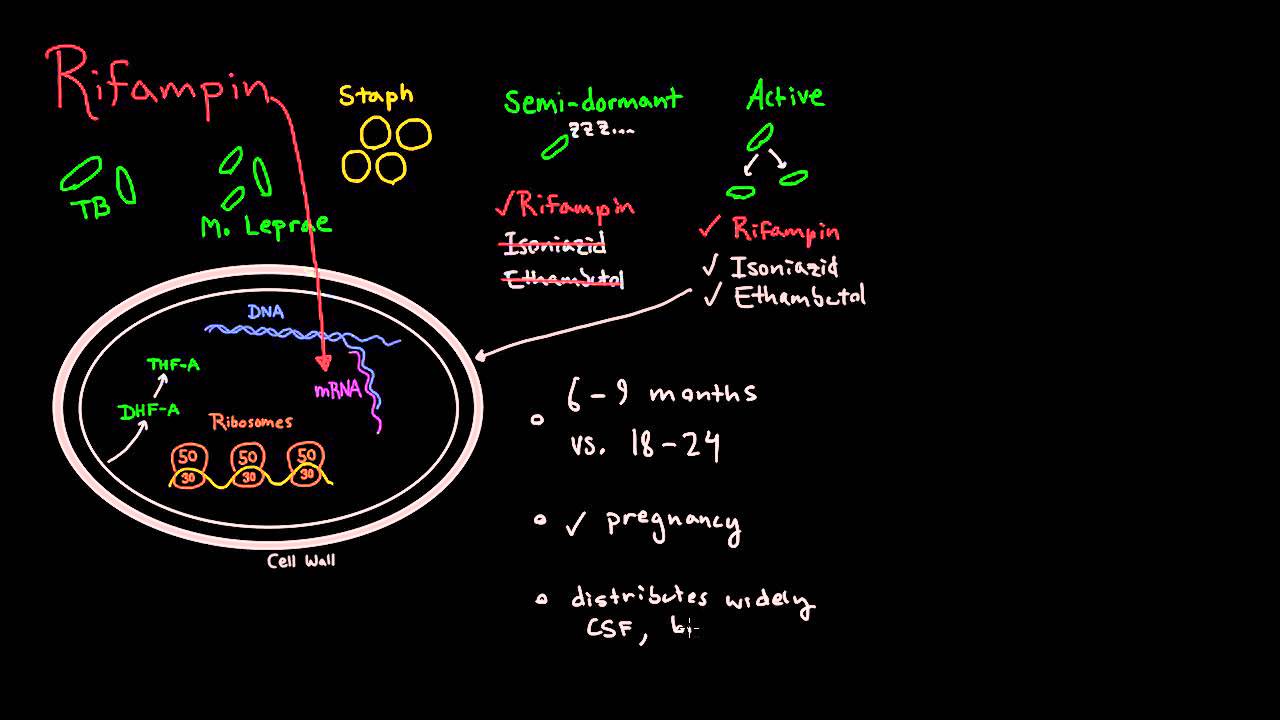 Rifampin
Staph
TB
M. Leprae
Semi-dormant
zzz...
✓Rifampin
Isoniazid
Ethambutol
Active
✓ Rifampin
✓ Isoniazid
✓ Ethambutol
DNA
THF-A
DHF-A
mRNA
Ribosomes
50 50 50
30 30 30
Cell Wall
6-9 months
vs. 18-24
✓ pregnancy
distributes widely
CSF,